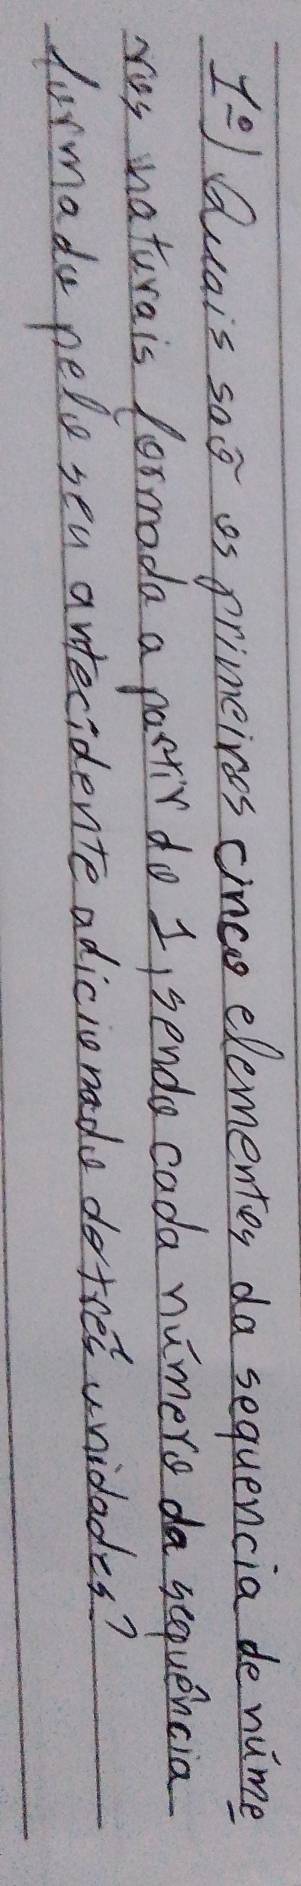 1º) Quais são os primeiros cinco elementos da sequencia de núme
ros naturais formada a partir do 1, sendo cada número da sequência
formado pelo seu antecidente adicionado de três unidades?